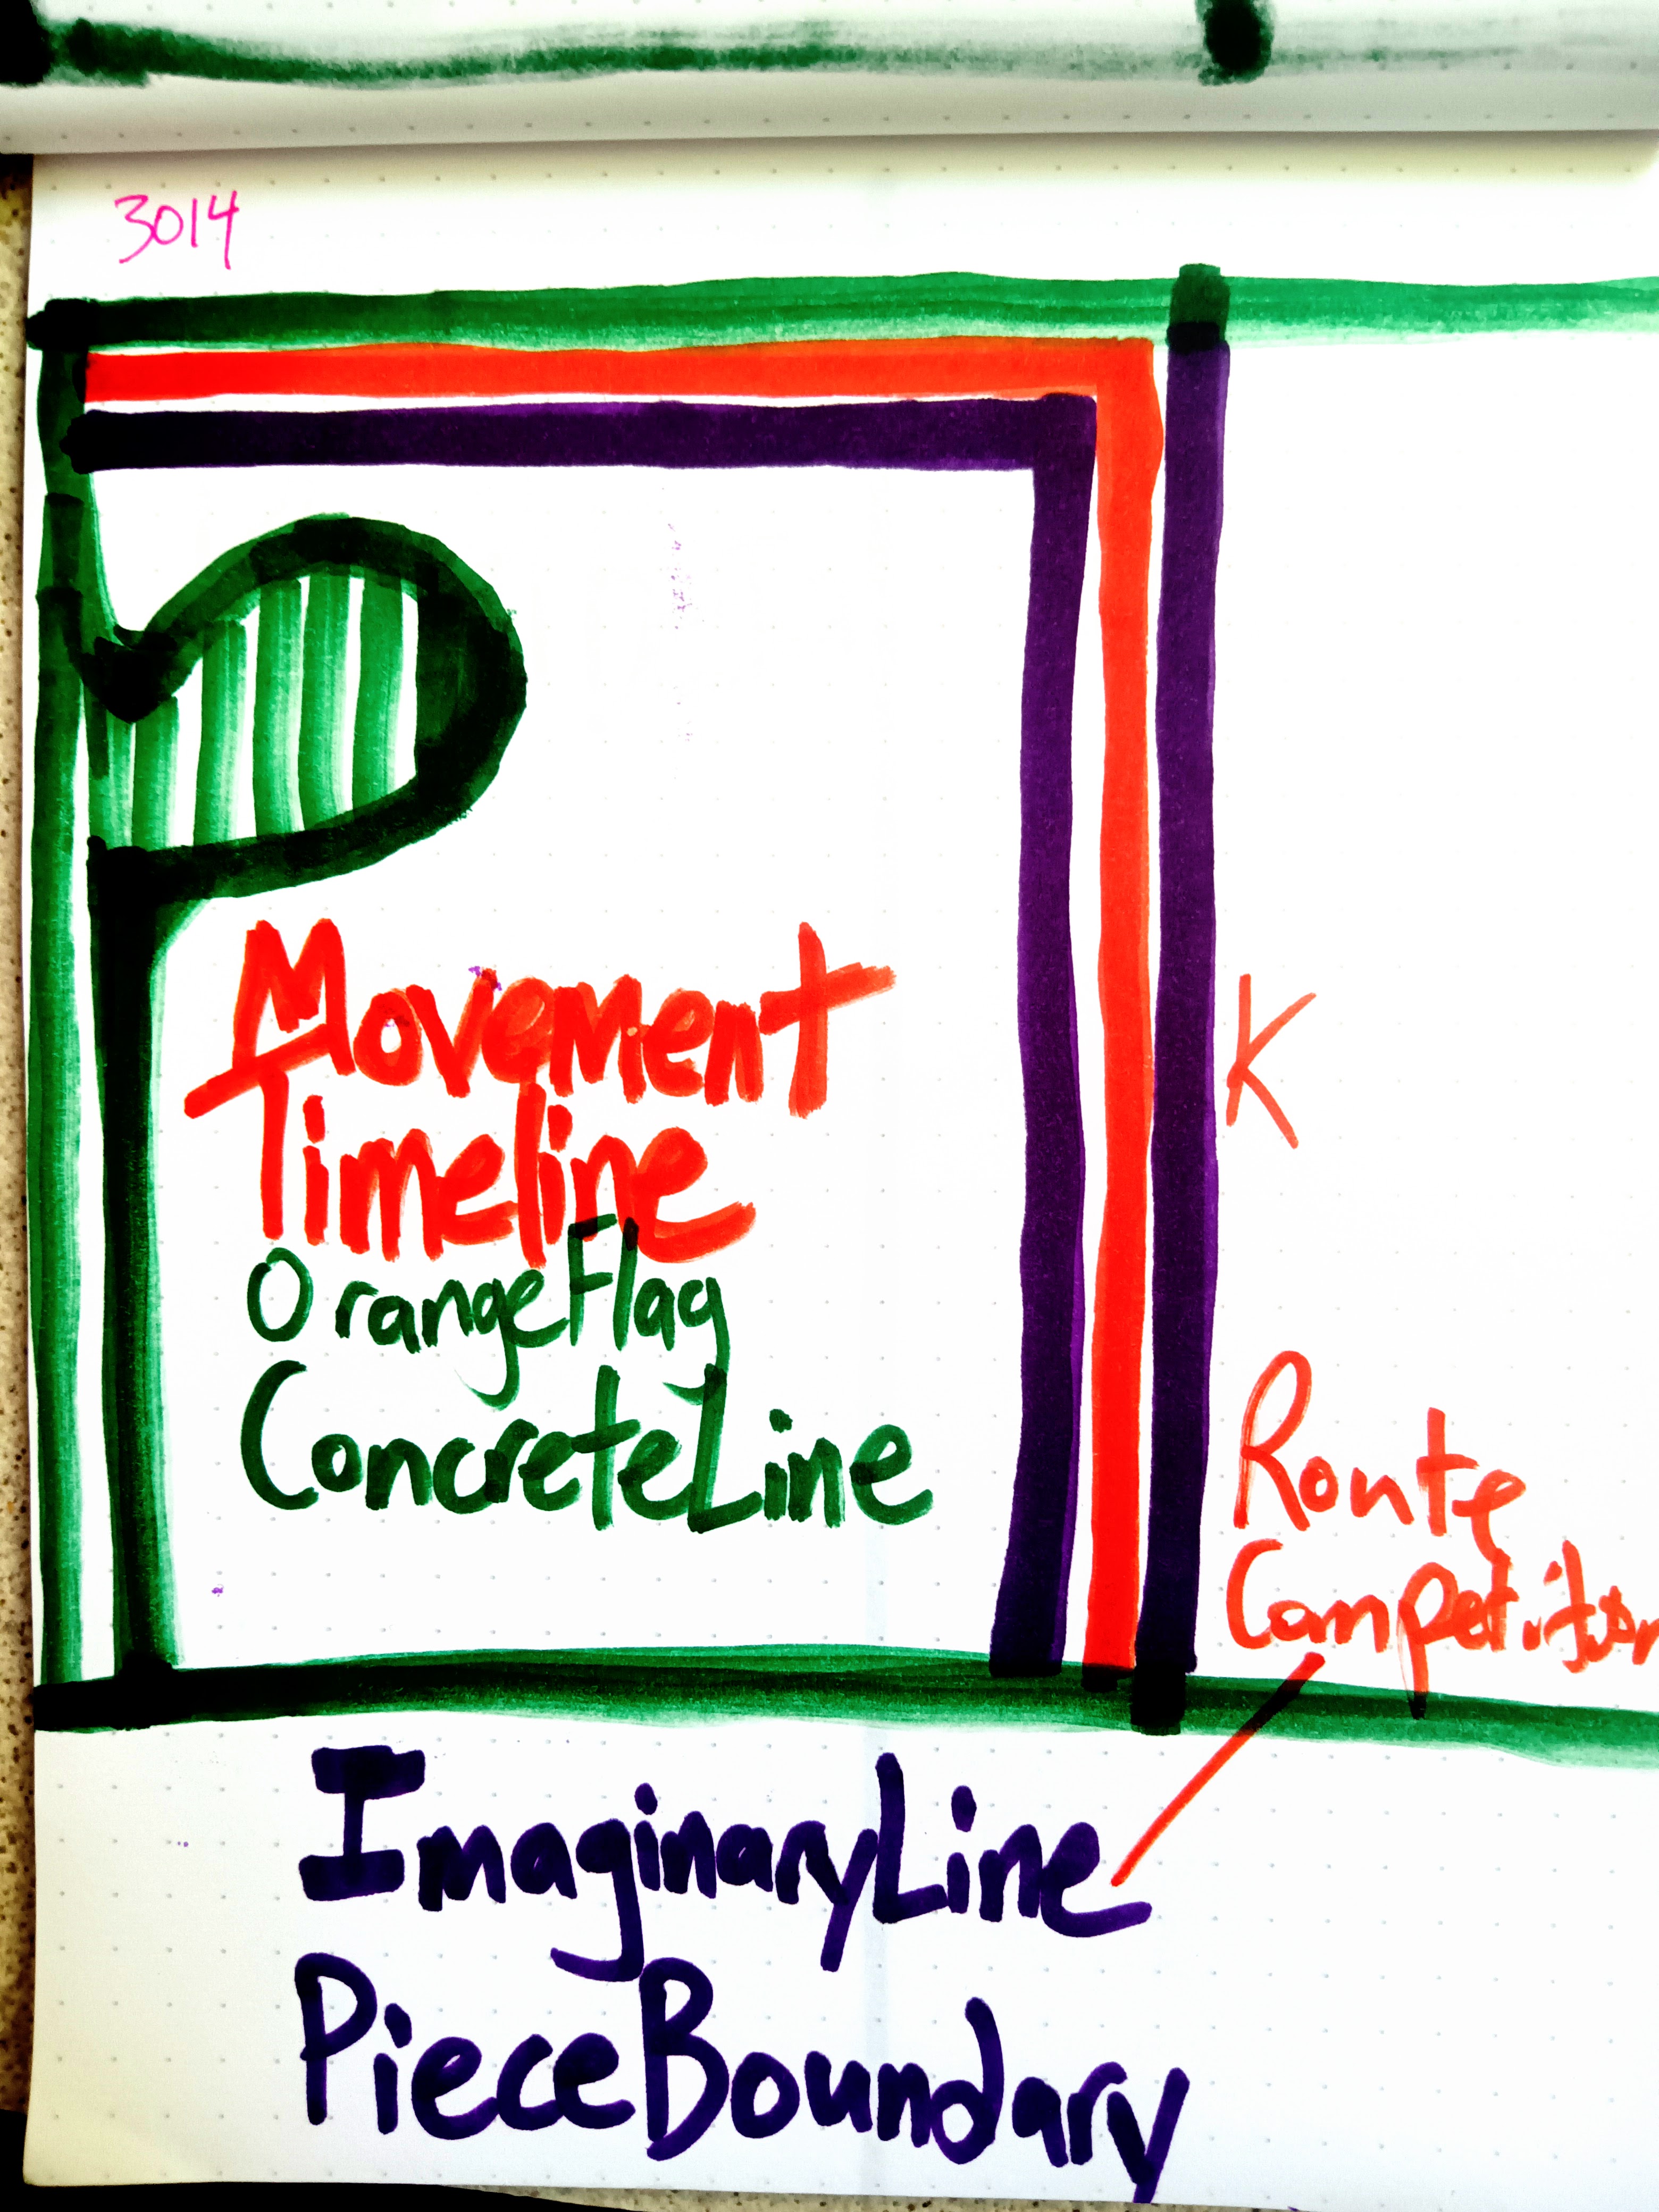 3014
Movement
Timeline
OrangeFlag
ConcreteLine
K
Route
Competitor
ImaginaryLine
PieceBoundary